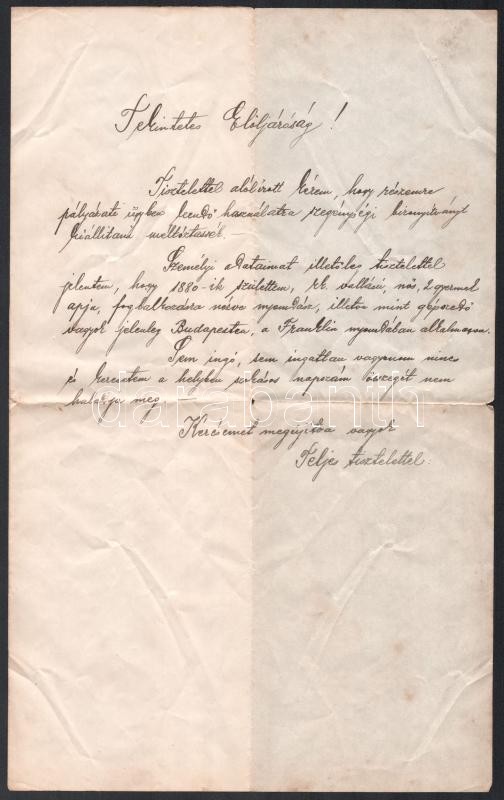 Tekintetes Elöljáróság!
Tisztelettel alólirott kérem, hogy részemre
pályázati ügyben leendő használatra szegénységi bizonyitványt
kiállitani méltóztassék.
Személyi adataimat illetőleg tisztelettel
jelentem, hogy 1880-ik születtem, rk. vallásu, nős, 2 gyermek
apja, foglalkozásra nézve nyomdász, illetve mint gépszedő
vagyok jelenleg Budapesten, a Franklin nyomdában alkalmazva.
Sem ingó, sem ingatlan vagyonom nincs
és keresetem a helyben szokásos napszám összegét nem
haladja meg.
Kérésemet megujitva vagyok
Teljes tisztelettel:
darabanth